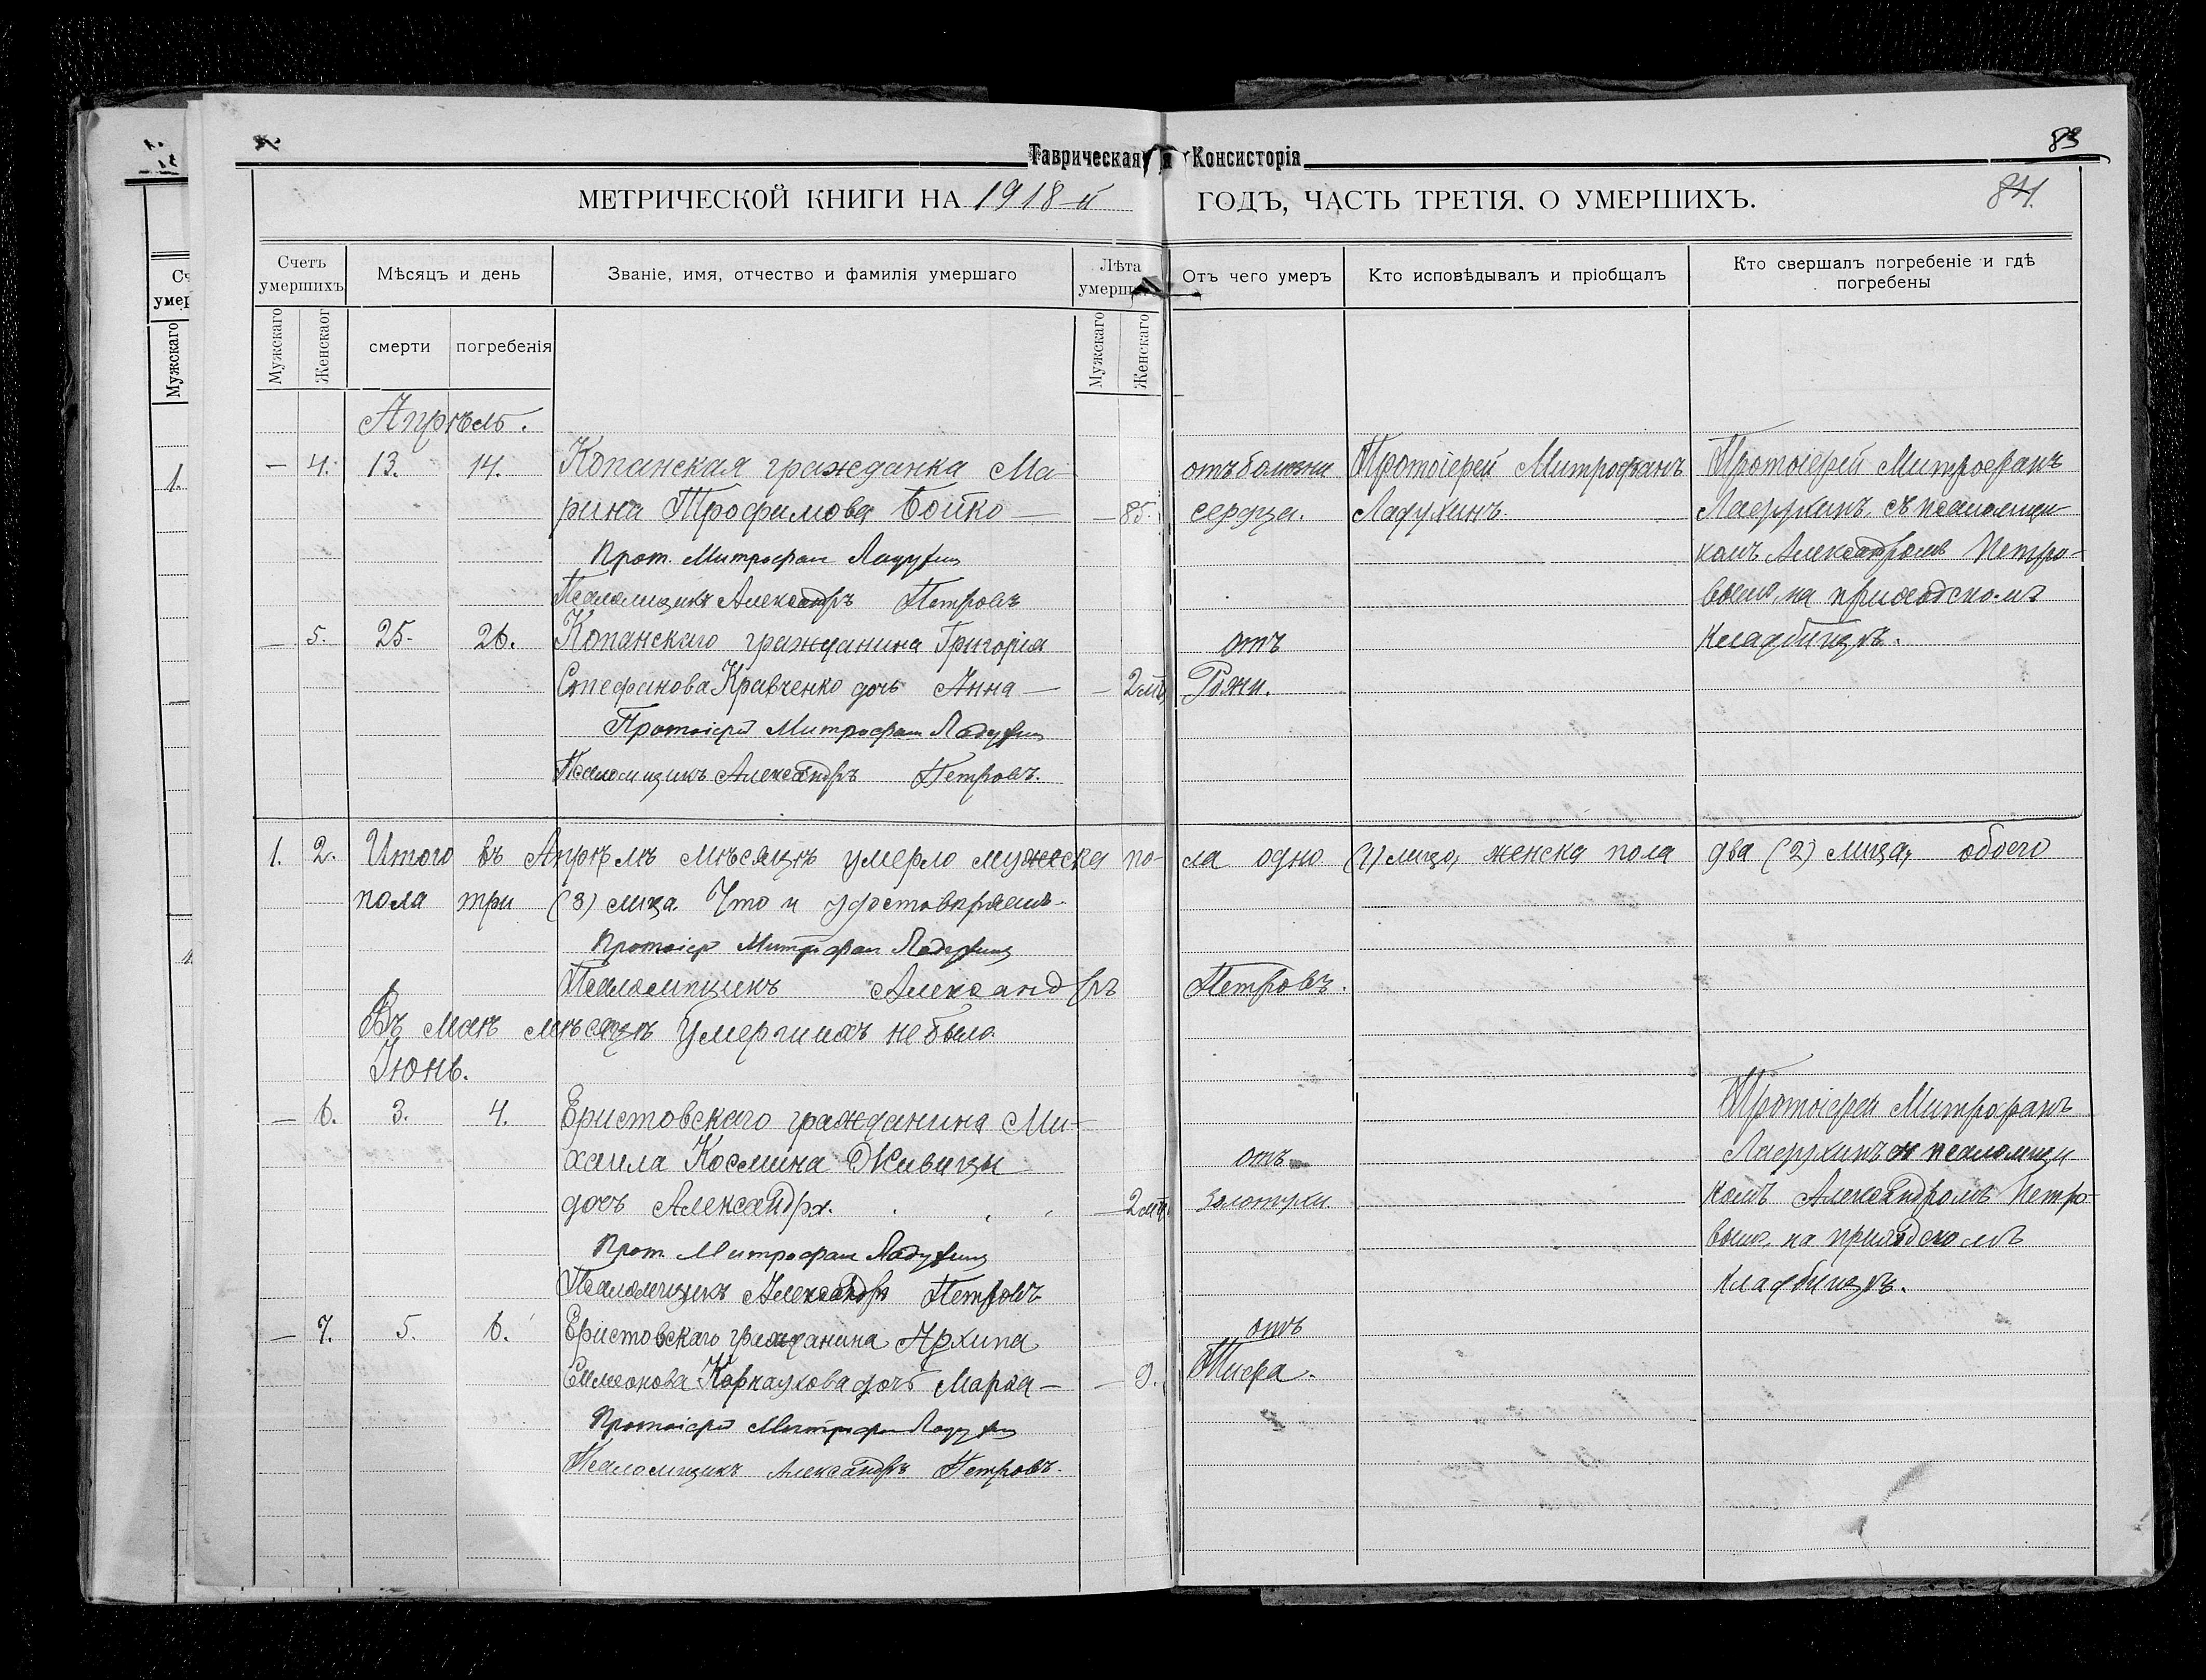 Таврическая Консисторія
83
МЕТРИЧЕСКОЙ КНИГИ НА 1918-й ГОДЪ, ЧАСТЬ ТРЕТІЯ, О УМЕРШИХЪ.
84.
Счетъ умершихъ
Мѣсяцъ и день
Званіе, имя, отчество и фамилія умершаго
Лѣта
Отъ чего умеръ
Кто исповѣдывалъ и пріобщалъ
Кто свершалъ погребеніе и гдѣ погребены
Мужскаго
Женскаог
смерти
погребенія
Мужскаго
Женскаго
Апрѣль.
— 4. 13. 14. Копанская гражданка Ма- отъ болѣзни Протоіерей Митрофанъ Протоіерей Митрофанъ
рина Трофимова Бойко — — 85. сердца. Ладухинъ. Ладухинъ, съ псаломщи-
Прот. Митрофан Ладухин комъ Александромъ Петро-
Псаломщикъ Александръ Петровъ вымъ, на приходскомъ
— 5. 25. 26. Копанскаго гражданина Григорія отъ кладбищѣ.
Стефанова Кравченко дочь Анна — — 2 мѣ. Рожи.
Протоіерей Митрофан Ладухин
Псаломщикъ Александръ Петровъ.
1. 2. Итого въ Апрѣлѣ мѣсяцѣ умерло мужеска по- ла одно (1) лицо, женска пола два (2) лица, обоего
пола три (3) лица. Что и удостовѣряемъ.
Протоіер Митрофан Ладухин
Псаломщикъ Александръ Петровъ.
Въ маѣ мѣсяцѣ умершихъ не было.
Іюнь.
— 6. 3. 4. Еристовскаго гражданина Ми- Протоіерей Митрофанъ
хаила Космина Живицы отъ Ладухинъ и псаломщи-
дочь Александра. — 2 мѣ. золотухи комъ Александромъ Петро-
Прот Митрофан Ладухин вымъ, на приходскомъ
Псаломщикъ Александръ Петровъ кладбищѣ.
— 7. 5. 6. Еристовскаго гражданина Архипа отъ
Симеонова Карнаухова дочь Марѳа — — 9. Тифа.
Протоіерей Митрофан Ладухин
Псаломщикъ Александръ Петровъ.